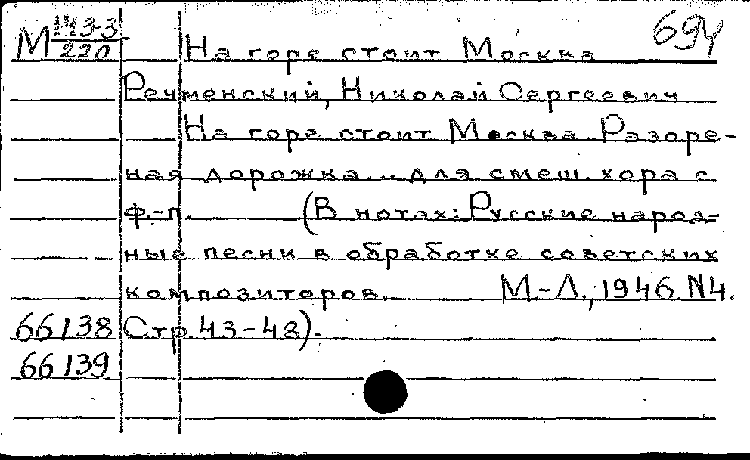 М 143-3/220 На горе стоит Москва 694
Речменский, Николай Сергеевич
На горе стоит Москва. Разоре-
ная дорожка... для смеш. хора с
ф.-п. (В нотах: Русские народ-
ные песни в обработке советских
композиторов. М.-Л., 1946. N4.
66138 Стр. 43-48).
66139